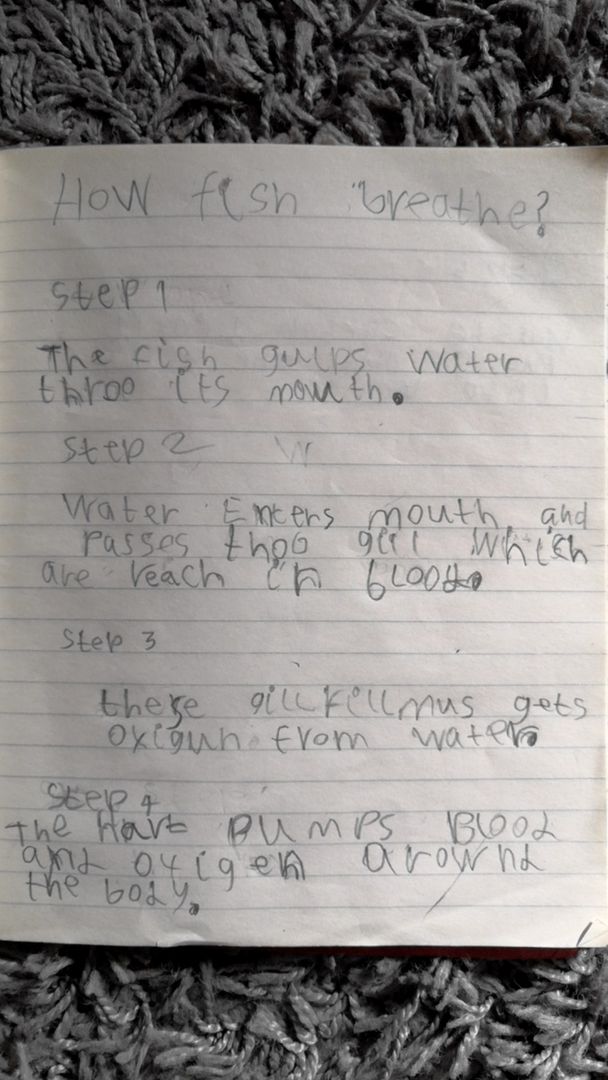 How fish breathe?
Step 1
The fish gulps water
throo its mouth.
Step 2
Water Enters mouth and
passes thoo gill which
are reach in blood.
Step 3
these gillfillmus gets
oxigun from water
Step 4
The Hart pumps Blood
and oxigen arownd
the body.